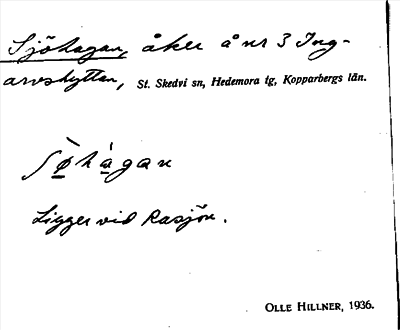 Sjöhagan, åker å nr 3 Ing-
arvshyttan, St. Skedvi sn, Hedemora tg, Kopparbergs län.
ʃø̀hàgan
Ligger vid Rasjön.
OLLE HILLNER, 1936.